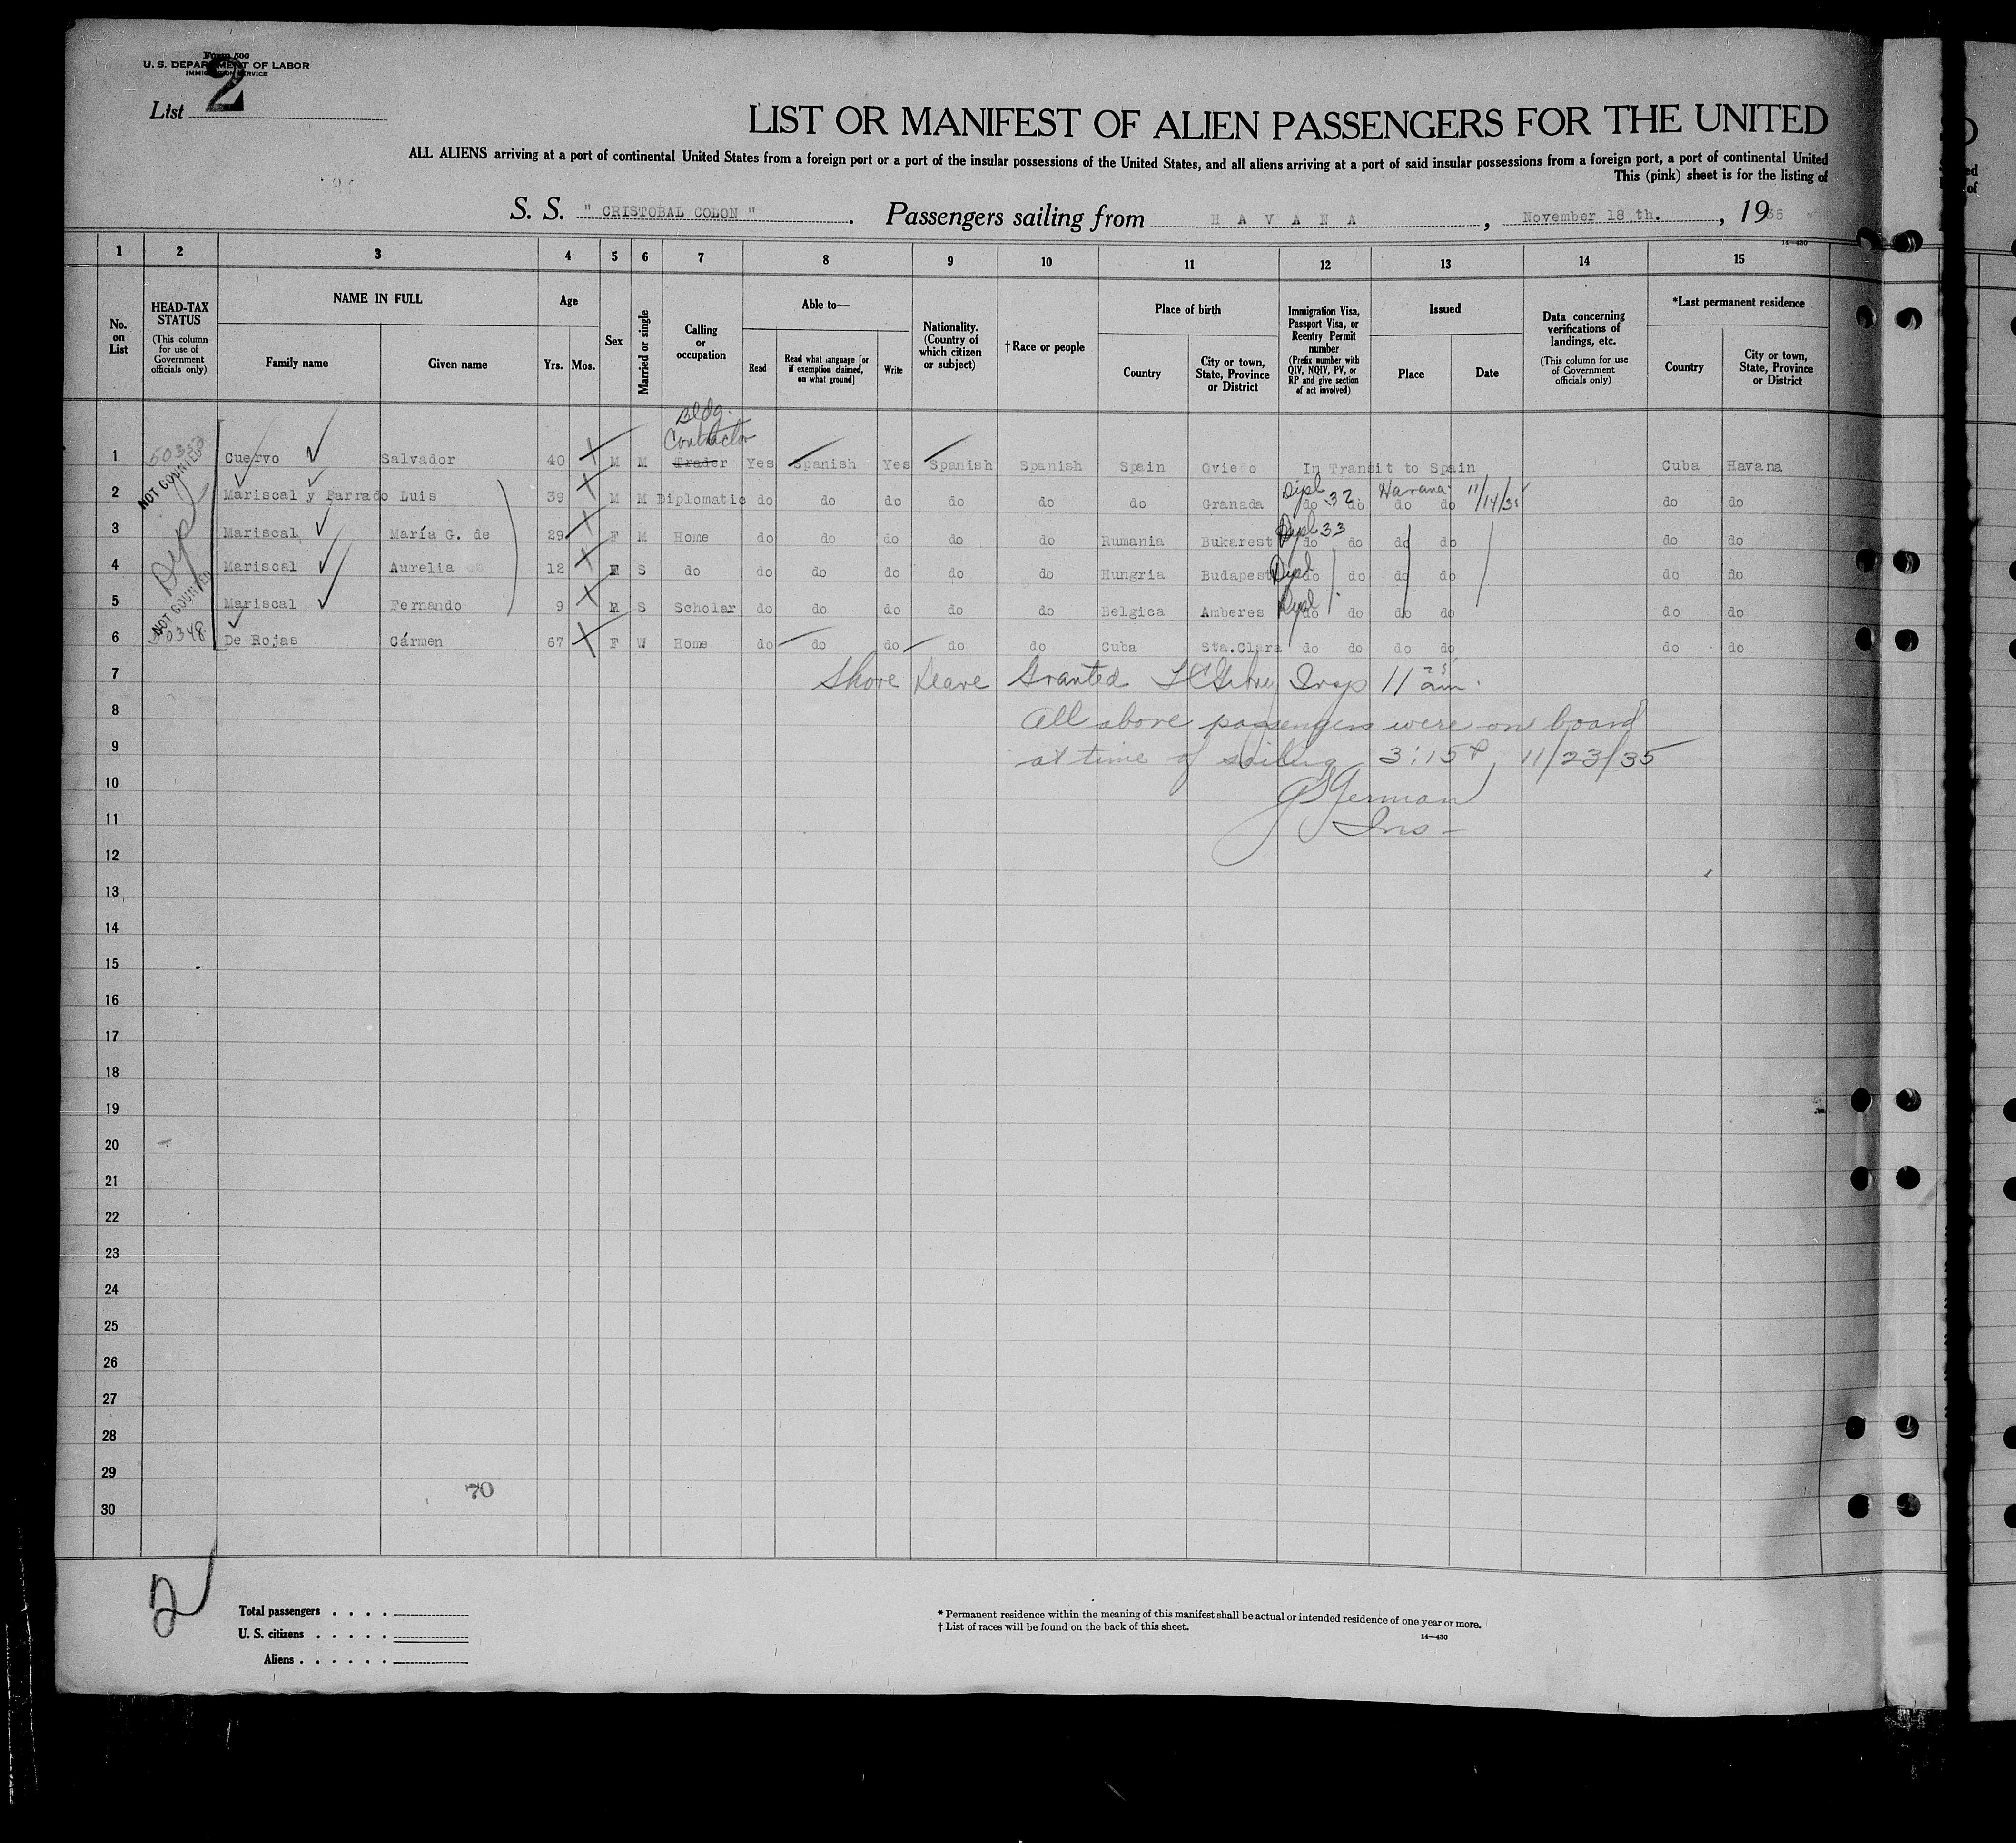 Form 500
U. S. DEPARTMENT OF LABOR
IMMIGRATION SERVICE
List 2
LIST OR MANIFEST OF ALIEN PASSENGERS FOR THE UNITED
ALL ALIENS arriving at a port of continental United States from a foreign port or a port of the insular possessions of the United States, and all aliens arriving at a port of said insular possessions from a foreign port, a port of continental United
This (pink) sheet is for the listing of
S. S. " CRISTOBAL COLON ". Passengers sailing from H A V A N A, November 18 th., 1935
14—430
1 2 3 4 5 6 7 8 9 10 11 12 13 14 15
No. on List
HEAD-TAX STATUS (This column for use of Government officials only)
NAME IN FULL
Family name Given name
Age
Yrs. Mos.
Sex
Married or single
Calling or occupation
Able to—
Read Read what language [or if exemption claimed, on what ground] Write
Nationality. (Country of which citizen or subject)
†Race or people
Place of birth
Country City or town, State, Province or District
Immigration Visa, Passport Visa, or Reentry Permit number (Prefix number with QIV, NQIV, PV, or RP and give section of act involved)
Issued
Place Date
Data concerning verifications of landings, etc. (This column for use of Government officials only)
*Last permanent residence
Country City or town, State, Province or District
Bldg.
Contractor
1 Cuervo Salvador 40 M M Trader Yes Spanish Yes Spanish Spanish Spain Oviedo In Transit to Spain Cuba Havana
NOT COUNTED
2 Mariscal y Parrado Luis 39 M M Diplomatic do do do do do do Granada Dipl 32 do do Havana do do 11/14/35 do do
3 Mariscal María G. de 29 F M Home do do do do do Rumania Bukarest Dipl 33 do do do do do do
Dip
4 Mariscal Aurelia 12 S do do do do do do Hungria Budapest Dipl do do do do do do
5 Mariscal Fernando 9 M S Scholar do do do do do Belgica Amberes Dipl do do do do do do
NOT COUNTED
6 De Rojas Cármen 67 F W Home do do do do do Cuba Sta.Clara do do do do do do
7 Shore Leave Granted Insp 11 25 am.
8 All above passengers were on board
9 at time of sailing 3:15 P, 11/23/35
10 German
11 Ins-
12
13
14
15
16
17
18
19
20
21
22
23
24
25
26
27
28
29
70
30
2
Total passengers . . . .
U. S. citizens . . . . .
Aliens . . . . . .
* Permanent residence within the meaning of this manifest shall be actual or intended residence of one year or more.
† List of races will be found on the back of this sheet.
14—430